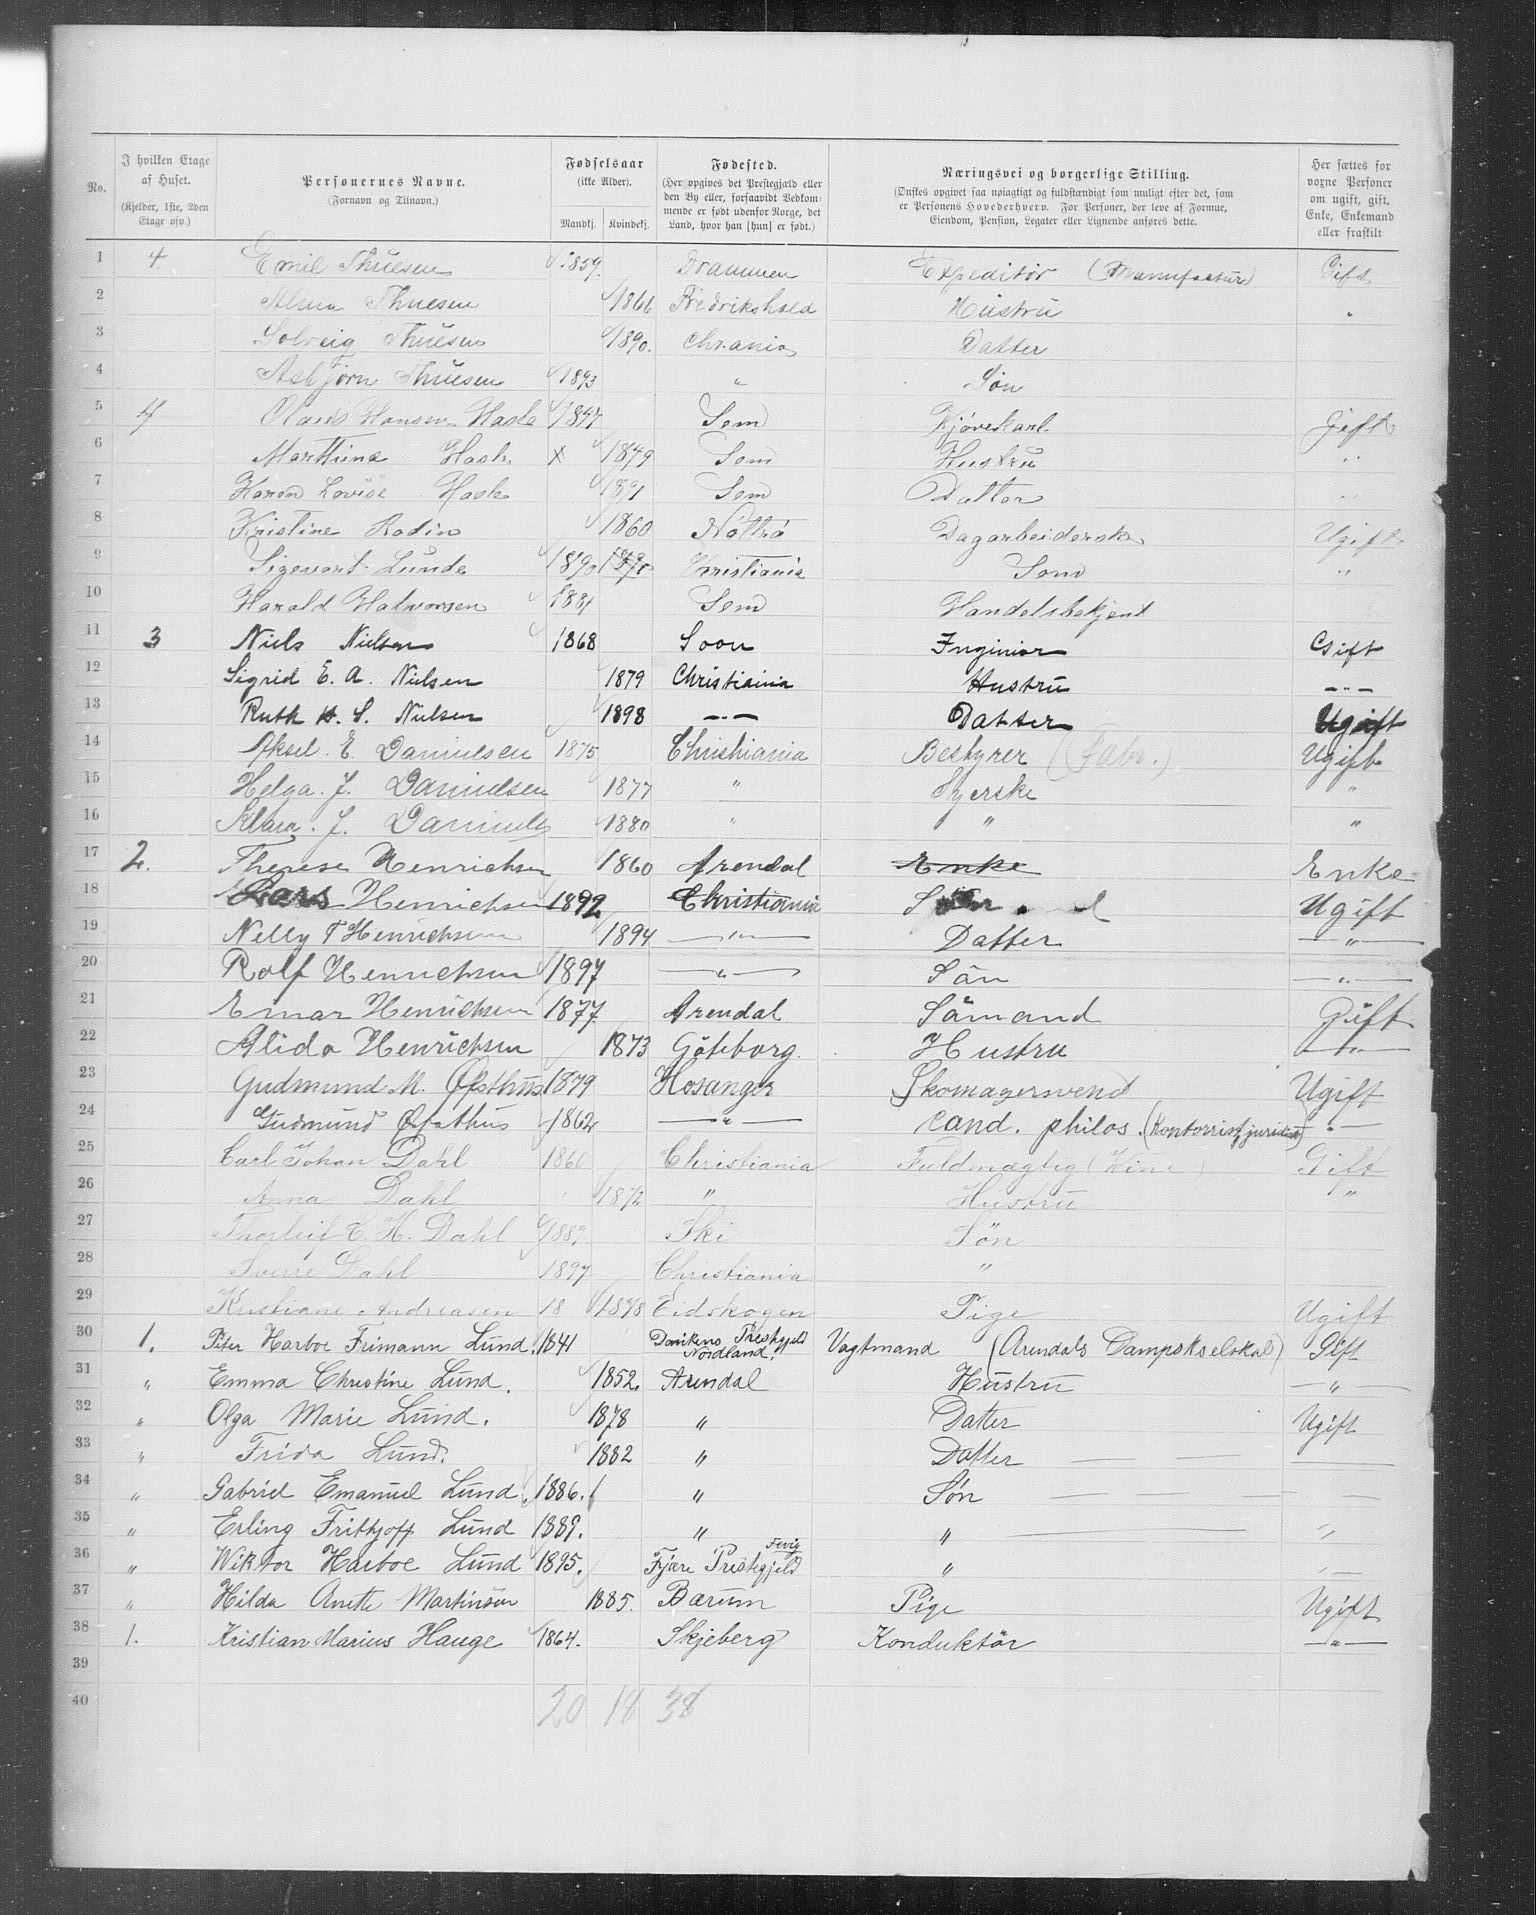 No. | I hvilken Etage af Huset. (Kjelder, 1ste, 2den Etage osv.) | Personernes Navne. (Fornavn og Tilnavn.) | Fødselsaar (ikke Alder). Mandkj. Kvindekj. | Fødested. (Her opgives det Prestegjæld eller den By eller, forsaavidt Vedkommende er født udenfor Norge, det Land, hvor han [hun] er født.) | Næringsvei og borgerlige Stilling. (Ønskes opgivet saa nøiagtigt og fuldstændigt som muligt efter det, som er Personens Hovederhverv. For Personer, der leve af Formue, Eiendom, Pension, Legater eller Lignende anføres dette. | Her sættes for voxne Personer om ugift, gift, Enke, Enkemand eller fraskilt
1 4. Emil Thuesen 1859. Drammen Expeditør (Manufactur) Gift
2 Alma Thuesen 1866 Fredrikshald Hustru "
3 Solveig Thuesen 1890. Chr.ania Datter
4 Asbjørn Thuesen 1893 " Søn
5 4 Hansen Sem gift
6 x 1849 Sem Hustru "
7 Karen Lovise 1891 Sem Datter "
8 Kristine Rodin 1860 Nøtterø Dagarbeiderske Ugift
9 Sigevart Lunde 1890 Kristiania Sønn "
10 Harald Halvorsen 1881 Sem Handelsbetjent
11 3 Niels Nielsen 1868 Soon Inginiør Gift
12 Sigrid E. A. Nielsen 1879 Christiania Hustru —"—
13 Ruth H. S. Nielsen 1898 —"— Datter Ugift
14 Aksel. E. Danielsen 1875 Christiania Bestyrer (Fabr.) Ugift
15 Helga. J. Danielsen 1877 " Syerske "
16 Klara. J. Daniels 1880 " " "
17 2. Therese Henrichsen 1860 Arendal Enke Enke
18 Lars Henrichsen 1892 Christiania Ugift
19 Nelly T Henrichsen 1894 —"— Datter —"—
20 Rolf Henrichsen 1897 —"— Sän —"—
21 Einar Henrichsen 1877 Arendal Sämand Gift
22 Alida Henrichsen 1873 Göteborg. Hustru —"—
23 Gudmund M. Øfsthus 1879 Hosanger Skomagersvend Ugift
24 Gudmund Øfsthus 1862 —"— cand. philos. (Kontorist, juridisk) —"—
25 Carl Johan Dahl 1860 Christiania Fuldmægtig (Vine) Gift
26 Anna Dahl 1872 " Hustru "
27 Thorleif C. H. Dahl 1889 Ski Søn
28 Sverre Dahl 1897 Christiania "
29 Kristiane Andreasen 18 1878 Eidskogen Pige Ugift
30 1. Peter Harboe Frimann Lund. 1841 Prestgjeld Nordland. Vagtmand (Arendals Dampskselskab) Gift
31 " Emma Christine Lund. 1852. Arendal Hustru —"—
32 " Olga Marie Lund. 1878 " Datter Ugift
33 " Frida Lund. 1882 " Datter —
34 " Gabriel Emanuel Lund. 1886. " Søn —
35 " Erling Frithjoff Lund 1889. " " — "
36 " Wiktor Harboe Lund 1895. Fjære Prestegjeld Fevig " "
37 " Hilda Anette Martinsen 1885. Bærum Pige Ugift
38 1. Kristian Marius Hauge 1864. Skjeberg Konduktör —"—
39
40 20 18 38